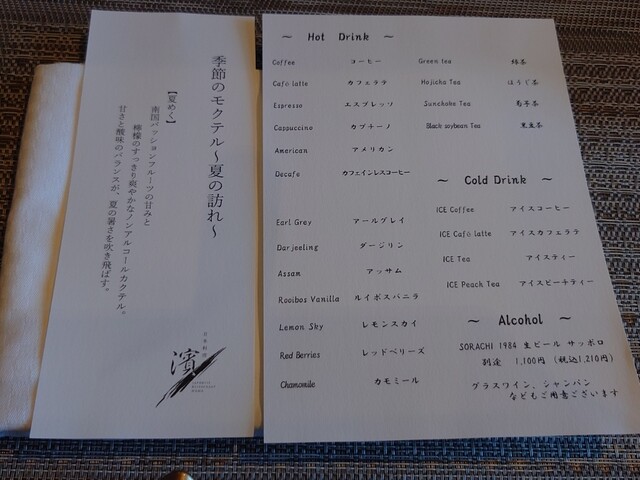 季節のモクテル～夏の訪れ～
【夏めく】
南国パッションフルーツの甘みと
檸檬のすっきり爽やかなノンアルコールカクテル。
甘さと酸味のバランスが、夏の暑さを吹き飛ばす。
日本料理
濱
～ Hot Drink ～
Coffee コーヒー
Café latte カフェラテ
Espresso エスプレッソ
Cappuccino カプチーノ
American アメリカン
Decafe カフェインレスコーヒー
Earl Grey アールグレイ
Darjeeling ダージリン
Assam アッサム
Rooibos Vanilla ルイボスバニラ
Lemon Sky レモンスカイ
Red Berries レッドベリーズ
Chamomile カモミール
Green tea 緑茶
Hojicha Tea ほうじ茶
Sunchoke Tea 菊芋茶
Black soybean Tea 黒豆茶
～ Cold Drink ～
ICE Coffee アイスコーヒー
ICE Café latte アイスカフェラテ
ICE Tea アイスティー
ICE Peach Tea アイスピーチティー
～ Alcohol ～
SORACHI 1984 生ビール サッポロ
別途 1,100円 (税込1,210円)
グラスワイン、シャンパン
などもご用意ございます